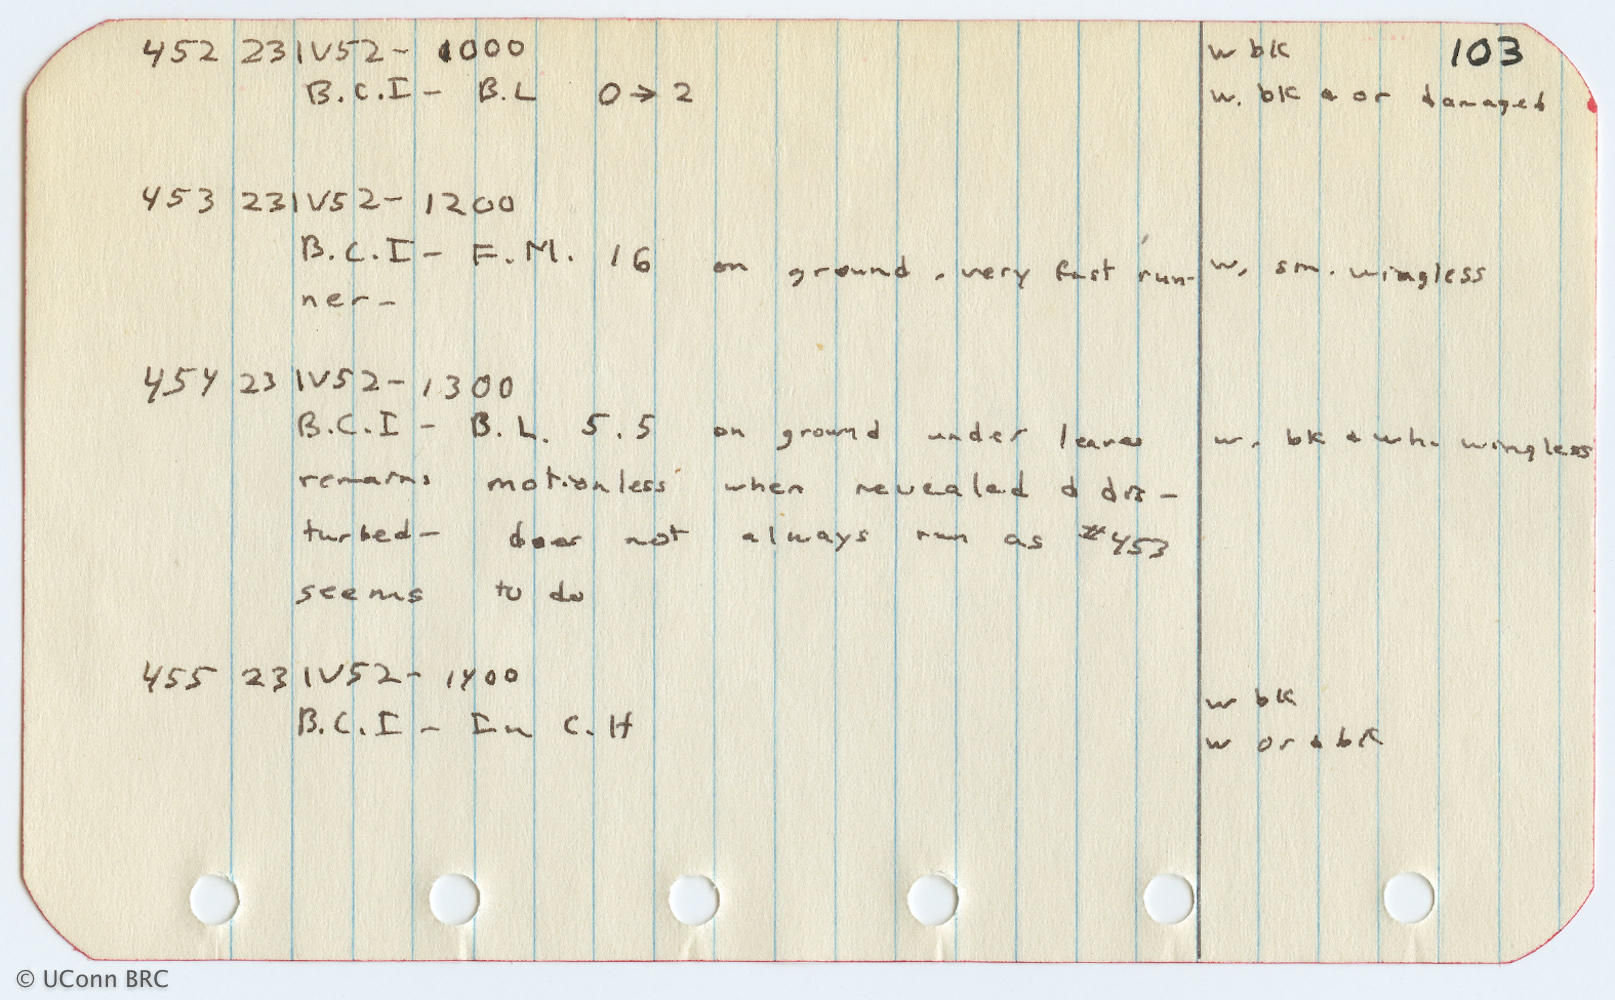 452 23IV52- 1000 w bk 103
B.C.I - B.L 0→2 w. bk & or damaged
453 23IV52- 1200
B.C.I - F.M. 16 on ground, very fast run- w. sm. wingless
ner-
454 23 IV52- 1300
B.C.I - B.L. 5.5 on ground under leaves w. bk & wh. wingless
remains motionless when revealed & dis-
turbed- does not always run as #453
seems to do
455 23 IV52- 1400
w bk
B.C.I - In C.H
w or & bk
© UConn BRC